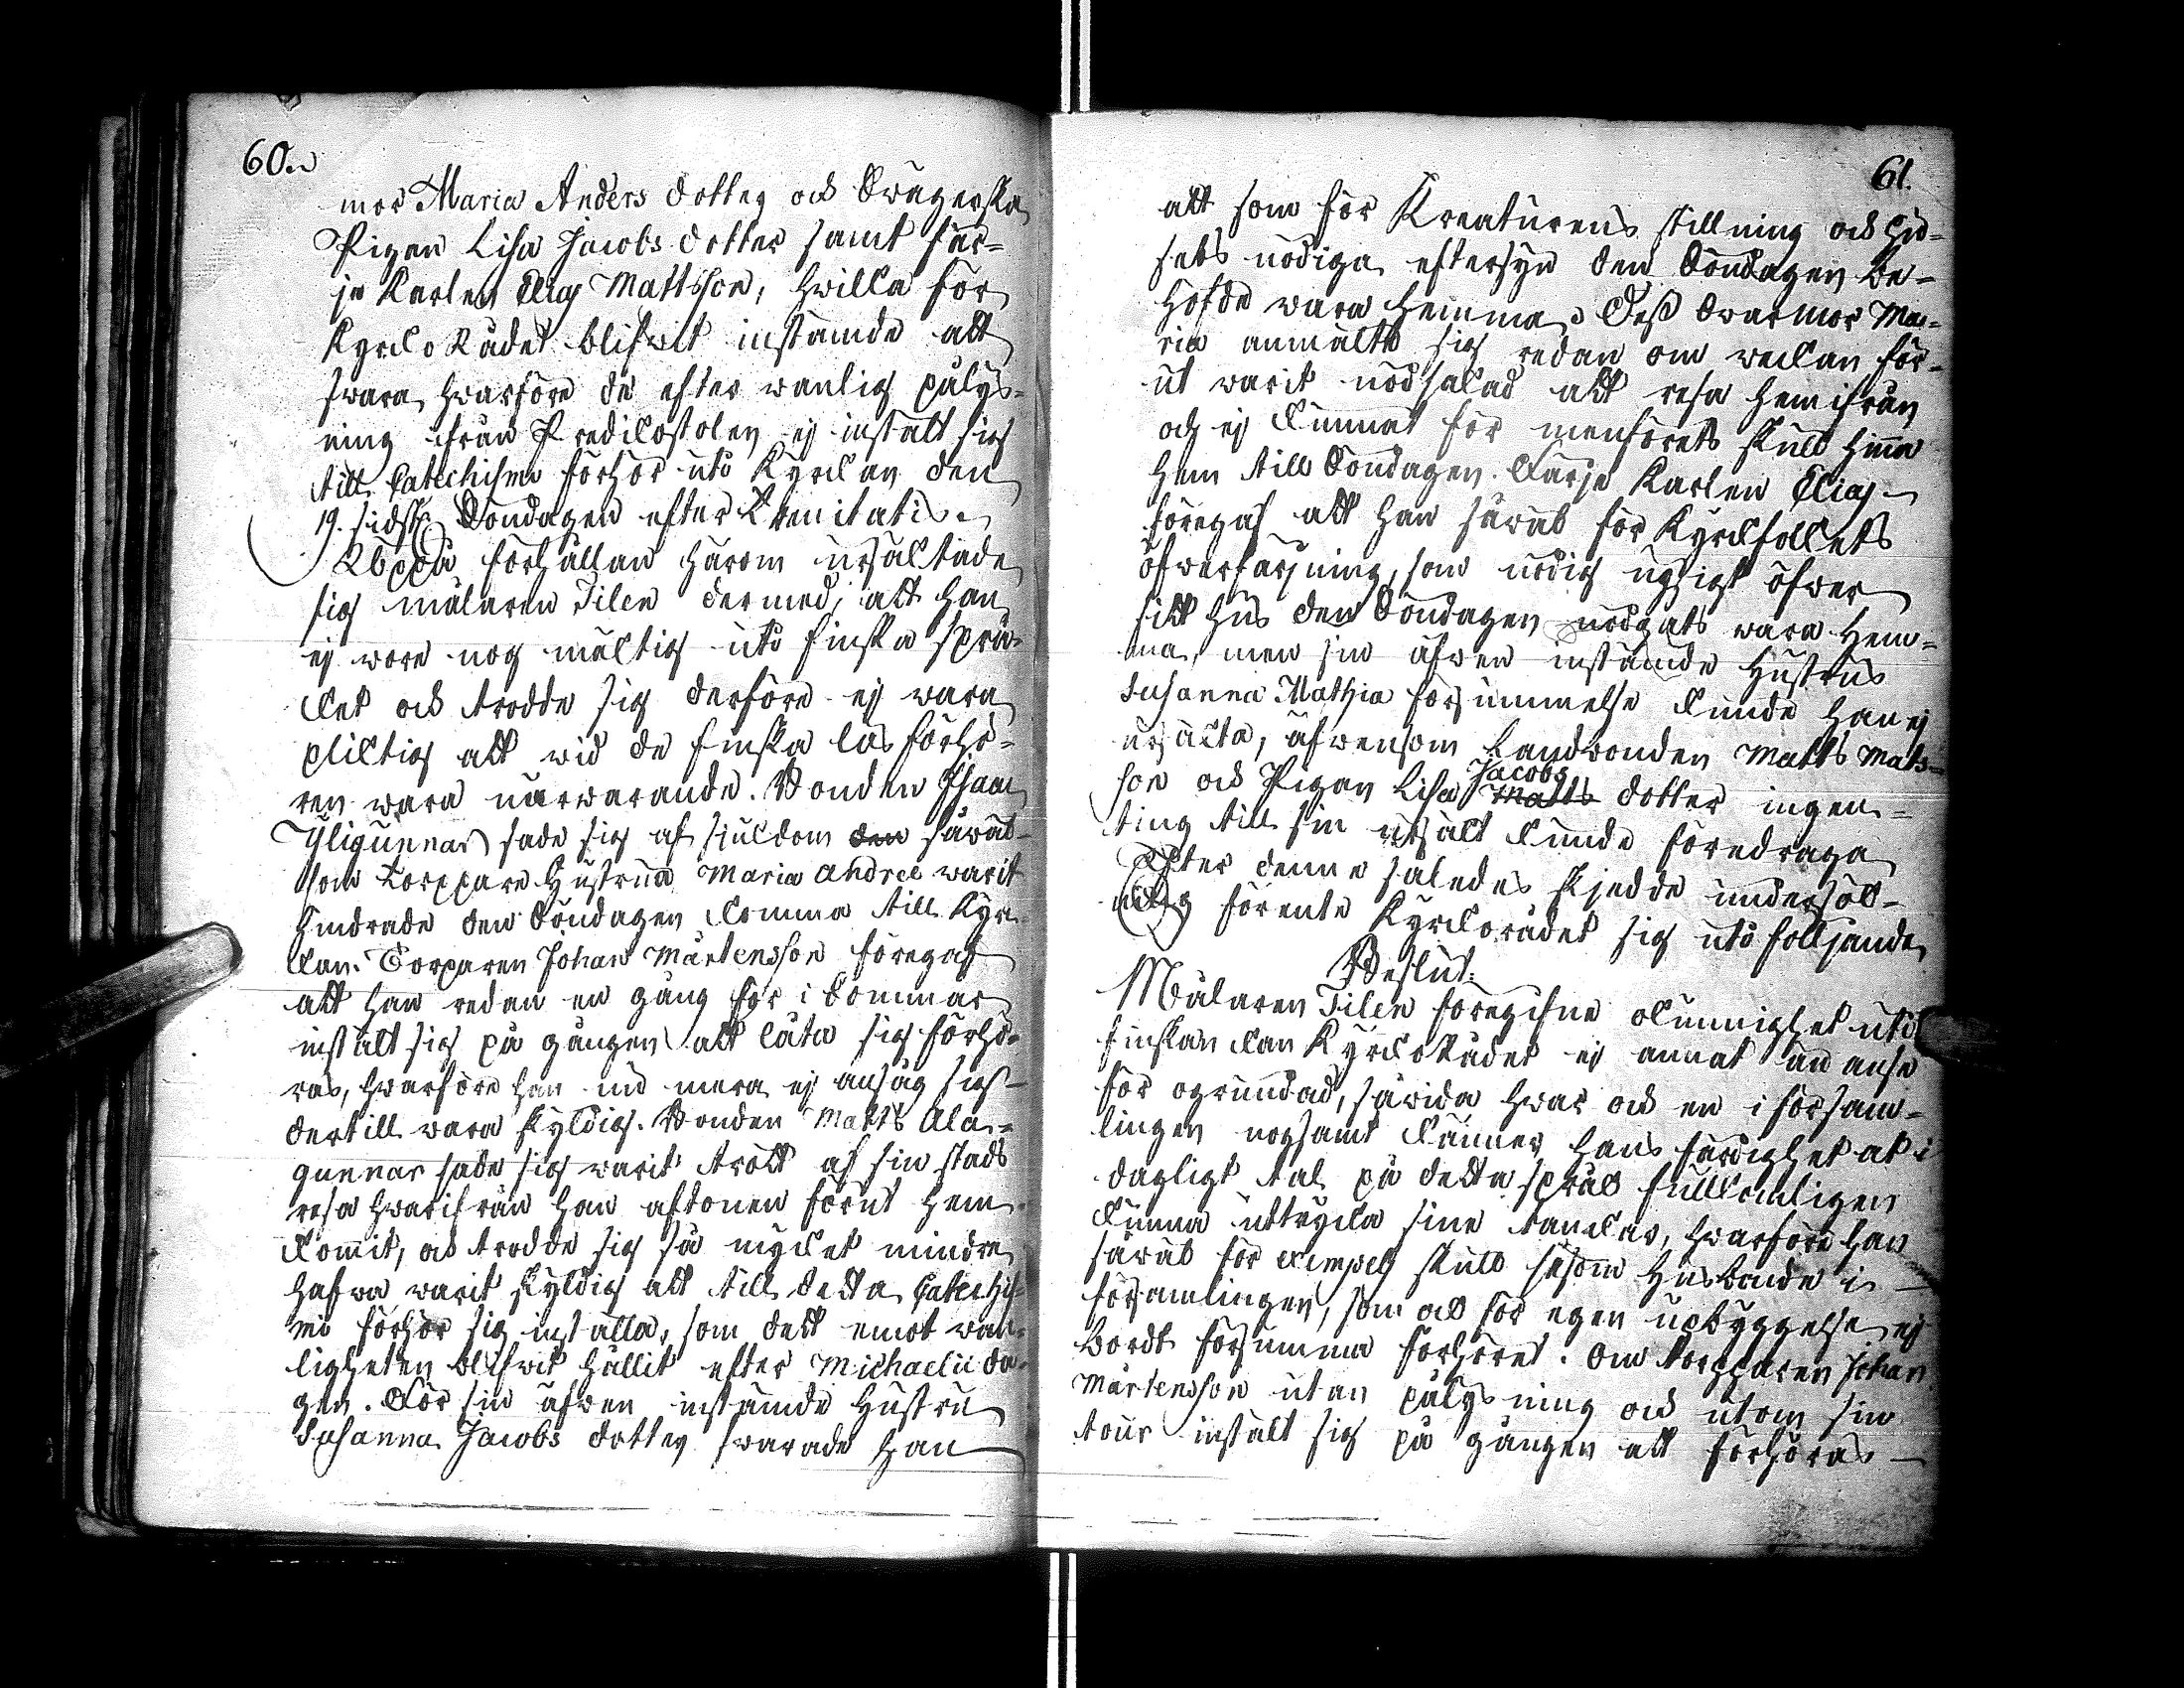 60.
mor Maria Anders dotter och Swägerska
Pigan Lisa Jacobs dotter samt fär-
je Karlen Elias Mattsson, hwilka för
Kyrcko Rådet blifwit instämde att
swara, hwarföre de efter wanlig pålys-
ning ifrån Predikostolen ej instält sig
till Catechismi förhör uti Kyrckan den
19. sidst. Söndagen efter Trinitatis.
Uppå förhållan härom ursäktade
sig målaren Tilen dermed, att han
ej wore nog mäktig uti Finska språ-
ket och trodde sig derföre ej wara
pliktig att wid de Finska läs förhö-
ren wara närwarande. Bonden Isaac
Yligunnar sade sig af sjukdom den såwäl
som Torppare Hustrun Maria Andree warit
hindrade den Söndagen komma till Kyr-
kan. Torparen Johan Mårtensson föregaf
att han redan en gång för i Sommar
instält sig på gången att låta sig förhö-
ras, hwarföre han nu mera ej ansåg sig
dertill wara skyldig. Bonden Matts Ala-
gunnar sade sig warit trött af sin stads
resa hwarifrån han aftonen förut hem
kommit, och trodde sig så mycket mindre
hafwa warit skyldig att till detta Catechis-
mi förhör sig inställa, som dett emot wan-
ligheten blifwit hållit efter Michaelii da-
gen. För sin äfwen instämde Hustru
Susanna Jacobs dotter swarade han
61.
att som för Kreaturens skillning och hu-
sets nödiga eftersyn den Söndagen be-
höfde wara hemma. Dess Swärmor Ma-
ria anmälte sig redan om weckan för-
ut warit nödsakad att resa hemifrån
och ej kunnat för menförets skull hinna
hem till Söndagen. Färje Karlen Elias
föregaf att han såwäl för Kyrckfolkets
öfwerfärjning, som nödig upsigt öfwer
sitt hus den Söndagen nödgats wara hem-
ma, men sin äfwen instämde Hustrus
Susanna Mathiæ försummelse kunde han ej
ursäkta, äfwensom Landbonden Matts Mats-
son och Pigan Lisa Matts Jacobs dotter ingen-
ting till sin ursäkt kunde föredraga
Efter denne således skjedde undersök-
ning förente Kyrckorådet sig uti följande
Beslut:
Målaren Tilen föregifne okunnighet uti
Finskan kan Kyrcko Rådet ej annat än anse
för ogrundad, såwida hwar och en i försam-
lingen nogsamt känner hans färdighet at i
dagligt tal på detta språk fullkomligen
kunna uttrycka sine tankar, hwarföre han
såwäl för exempels skull såsom Husbonde i
församlingen, som ock för egen upbyggelse ej
bordt försumma förhöret. Om torpparen Johan
Mårtensson utan pålysning och utom sin
tour instält sig på gången att förhöras